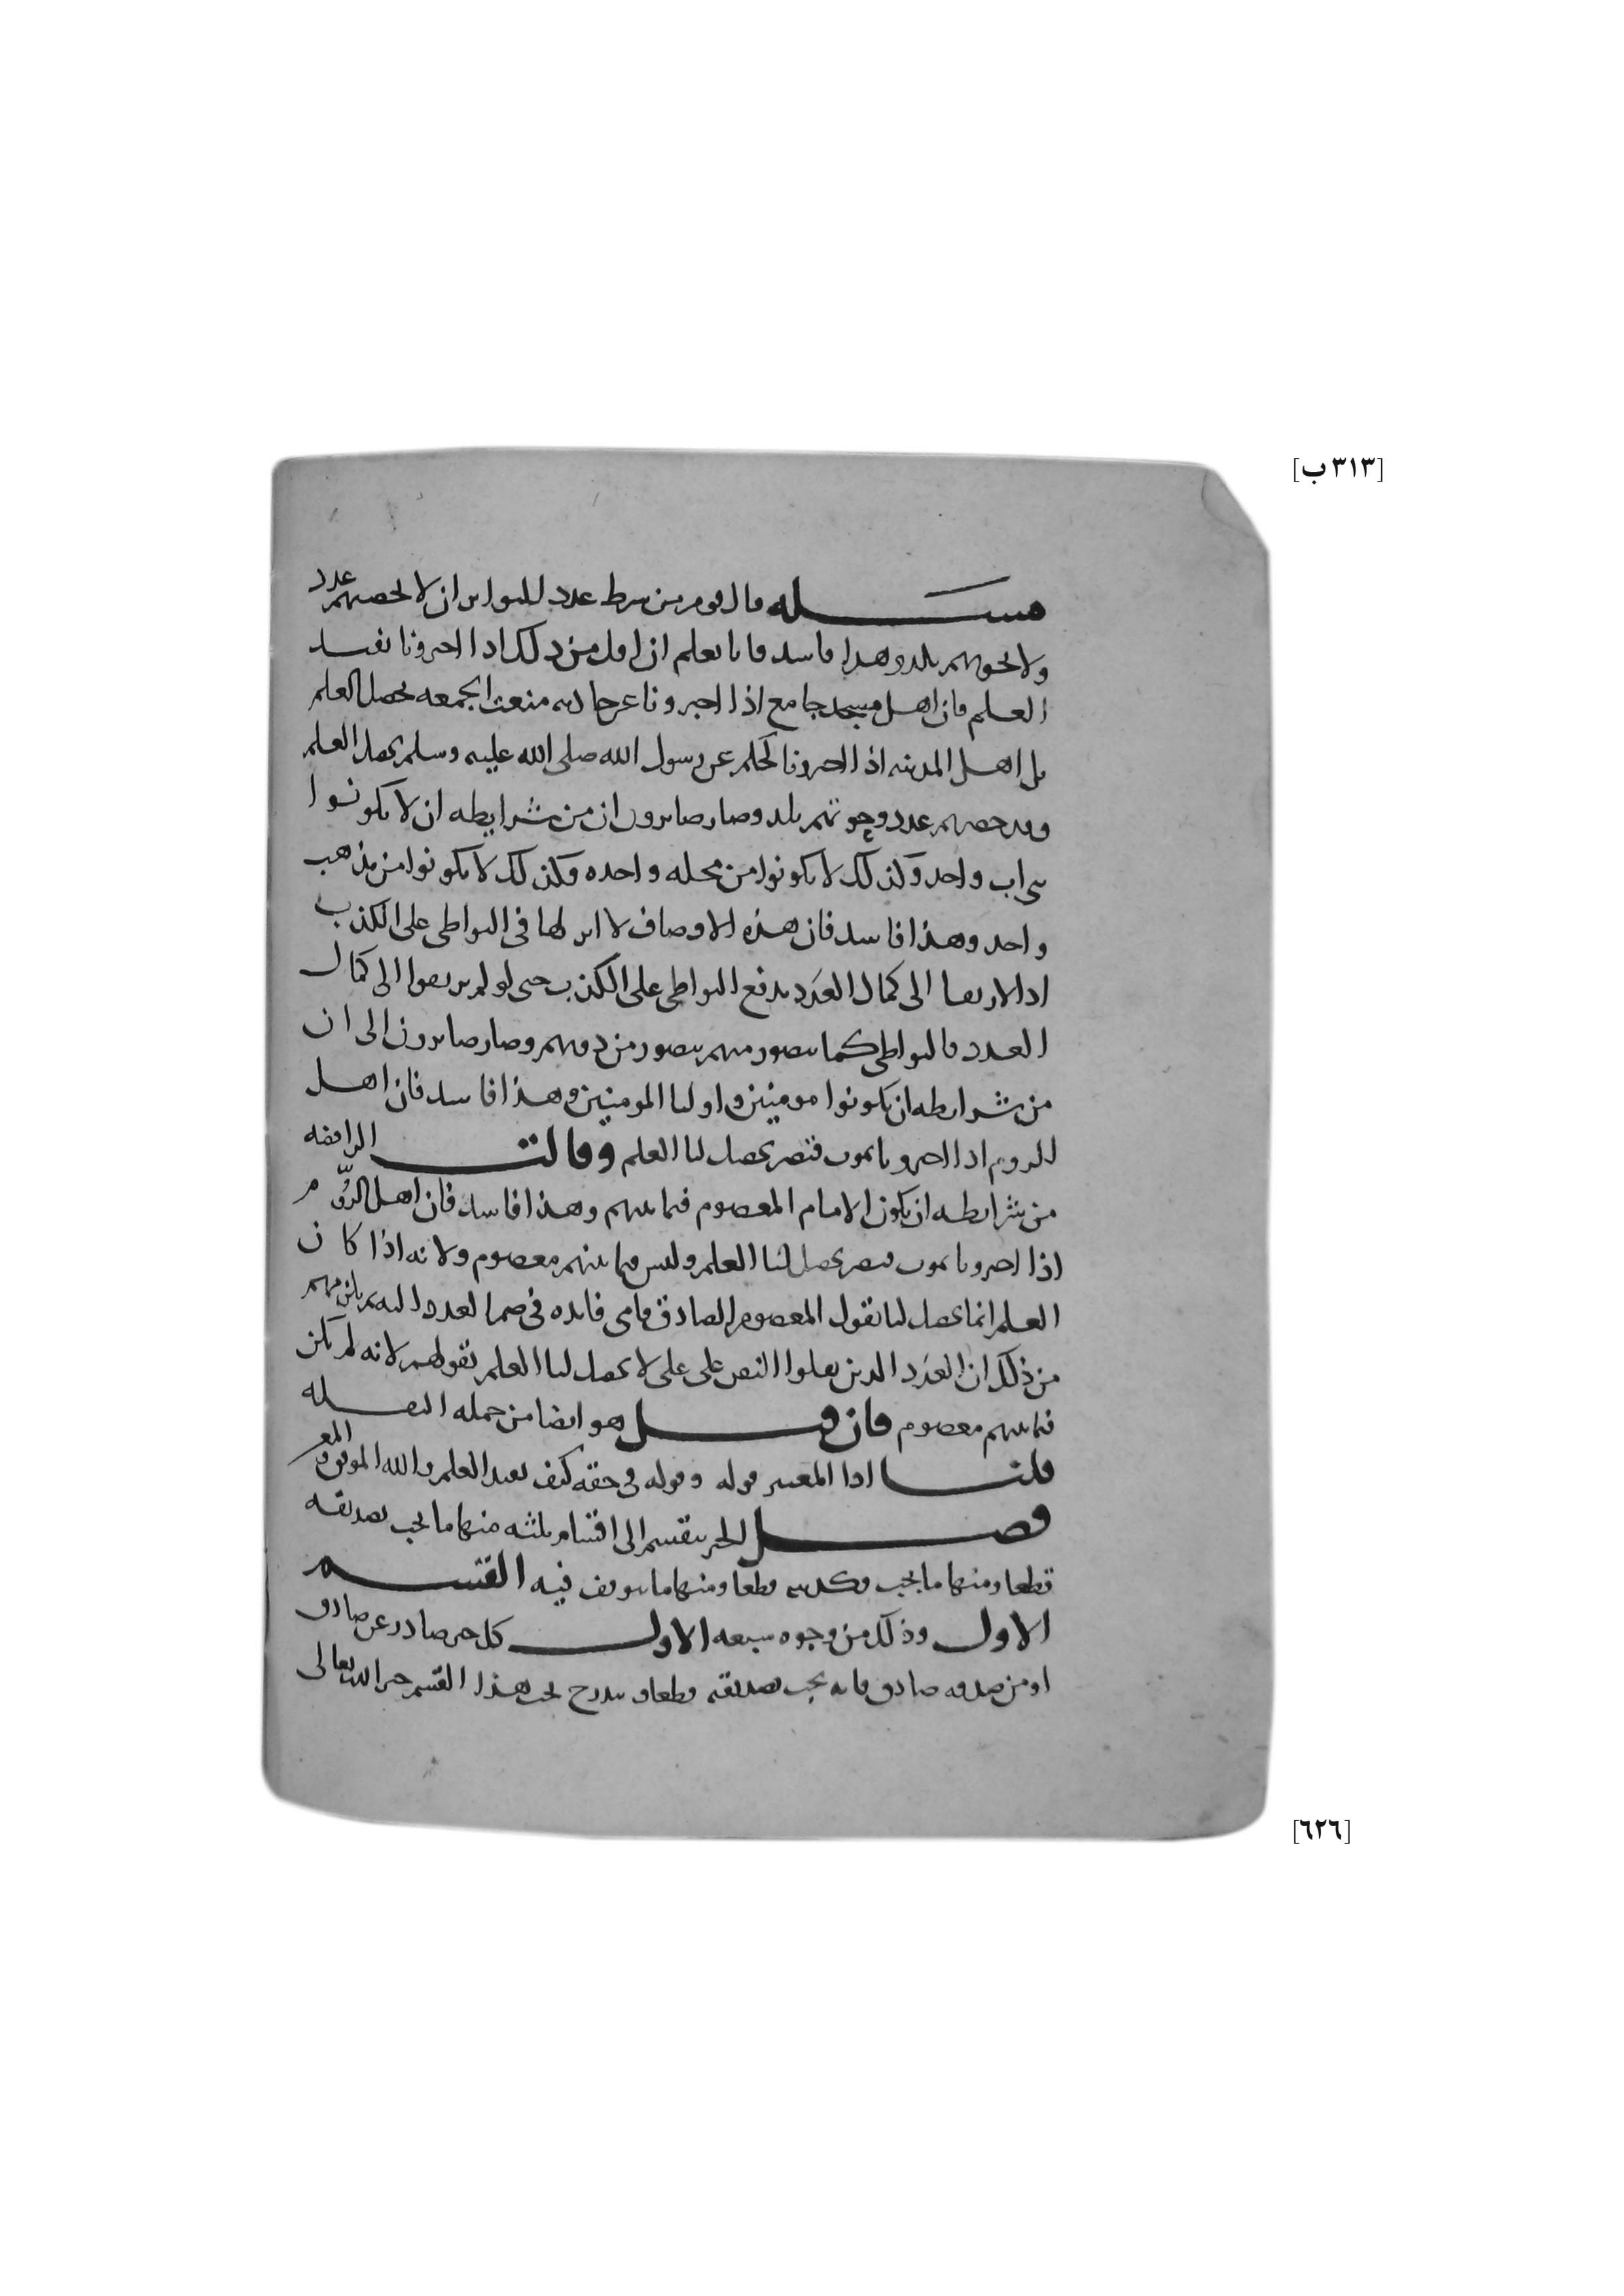 [٣١٣ ب]
مسئله قال قوم من شرط عدد التواتر ان لا يحصرهم عدد
ولا يحويهم بلد وهذا فاسد فانا نعلم ان اقل من ذلك اذا اخبرونا يفيد
العلم فان اهل مسجد جامع اذا اخبرونا عن حادثه منعت الجمعه يحصل العلم
بل اهل المدينه اذا اخبرونا عن رسول الله صلى الله عليه وسلم يحصل العلم
وقد حصرهم عدد وحوتهم بلد وصار صايرون ان من شرايطه ان لا يكونوا
بنى اب واحد وكذلك لا يكونوا من محله واحده وكذلك لا يكونوا من مذهب
واحد وهذا فاسد فان هذه الاوصاف لا اثر لها فى التواطى على الكذب
اذ الارتقا الى كمال العدد يدفع التواطى على الكذب حتى لو لم يرتقوا الى كمال
العدد فالتواطى كما يتصور منهم يتصور من دونهم وصار صايرون الى ان
من شرايطه ان يكونوا مومنين واوليا المومنين وهذا فاسد فان اهل
الروم اذا اخبرونا بموت قيصر يحصل لنا العلم وقالت الرافضه
من شرايطه ان يكون الامام المعصوم فيما بينهم وهذا فاسد فان اهل الروم
اذا اخبرونا بموت قيصر يحصل لنا العلم وليس فيما بينهم معصوم ولانه اذا كان
العلم انما يحصل لنا بقول المعصوم الصادق فاى فايده فى ضم العدد اليه ثم يلزمهم
من ذلك ان العدد الذين نقلوا النص على على لا يحصل لنا العلم بقولهم لانه لم يكن
فيما بينهم معصوم فان قيل هو ايضا من جمله النقله
قلنا اذا المعتبر قوله وقوله فى حقه كيف يفيد العلم والله الموفق والمعـ
فصل الخبر ينقسم الى اقسام ثلثه منها ما يجب تصديقه
قطعا ومنها ما يجب تكذيبه قطعا ومنها ما يتوقف فيه القسم
الاول وذلك من وجوه سبعه الاول كل خبر صادر عن صادق
او من صدقه صادق فانه يجب تصديقه قطعا ويندرج تحت هذا القسم خبر الله تعالى
[٦٢٦]